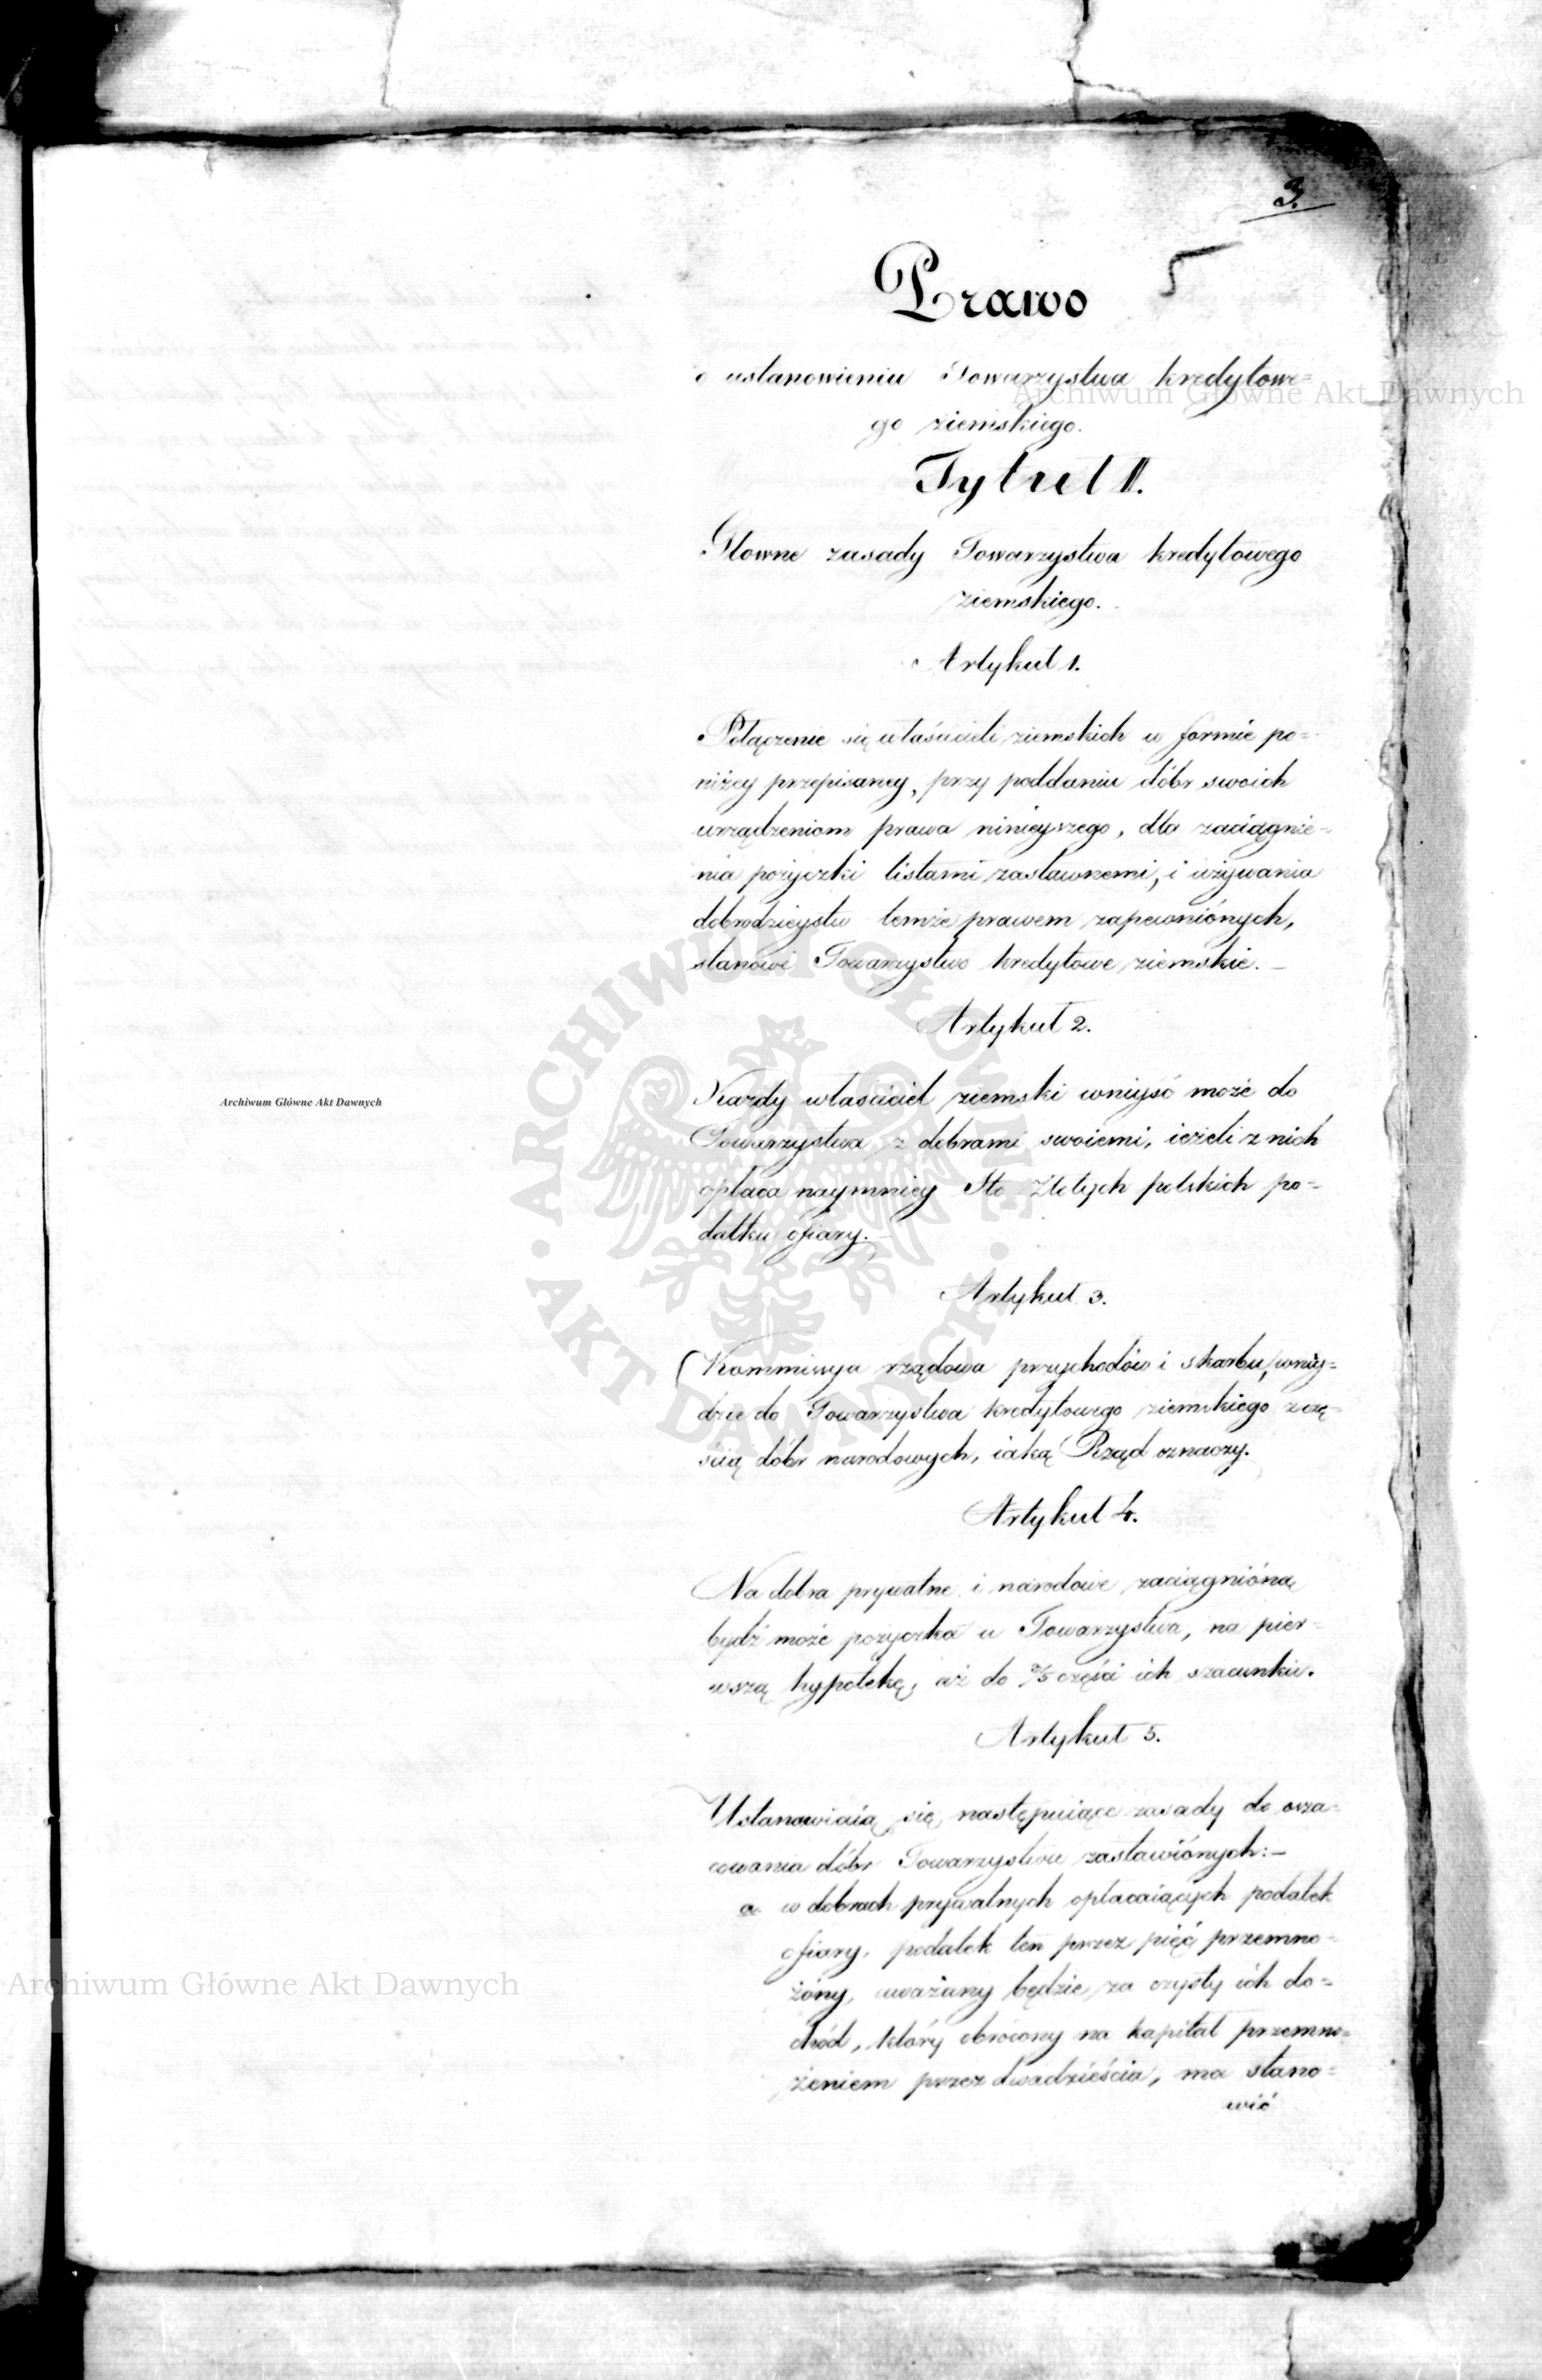 3.
5
Prawo
o ustanowieniu Towarzystwa kredytowe=
go ziemskiego.
Tytuł I.
Głowne zasady Towarzystwa kredytowego
ziemskiego.
Artykuł 1.
Połączenie się właścicieli ziemskich w formie po=
niżey przepisaney, przy poddaniu dóbr swoich
urządzeniom prawa ninieyszego, dla zaciągnie=
nia pożyczki listami zastawnemi, i używania
dobrodzieystw temże prawem zapewniónych,
stanowi Towarzystwo kredytowe ziemskie.
Artykuł 2.
Każdy właściciel ziemski wniyść może do
Towarzystwa z dobrami swoiemi, ieżeli z nich
opłaca naymniey Sto Złotych polskich po=
datku ofiary.
Artykuł 3.
Kommissya rządowa przychodów i skarbu, wniy=
dzie do Towarzystwa kredytowego ziemskiego z czę=
ścią dóbr narodowych, iaką Rząd oznaczy.
Artykuł 4.
Na dobra prywatne i narodowe zaciągnióną
bydź może pożyczka u Towarzystwa, na pier=
wszą hypotekę, aż do 3/5 części ich szacunku.
Artykuł 5.
Ustanawiaią się następuiące zasady do osza=
cowania dóbr Towarzystwu zastawiónych:—
a. w dobrach prywatnych opłacaiących podatek
ofiary, podatek ten przez pięć przemno=
żóny, uważany będzie za czysty ich do=
chód, który obrócony na kapitał przemno=
żeniem przez dwadzieścia, ma stano=
wić
Archiwum Główne Akt Dawnych
Archiwum Główne Akt Dawnych
Archiwum Główne Akt Dawnych
ARCHIWUM GŁÓWNE
AKT DAWNYCH